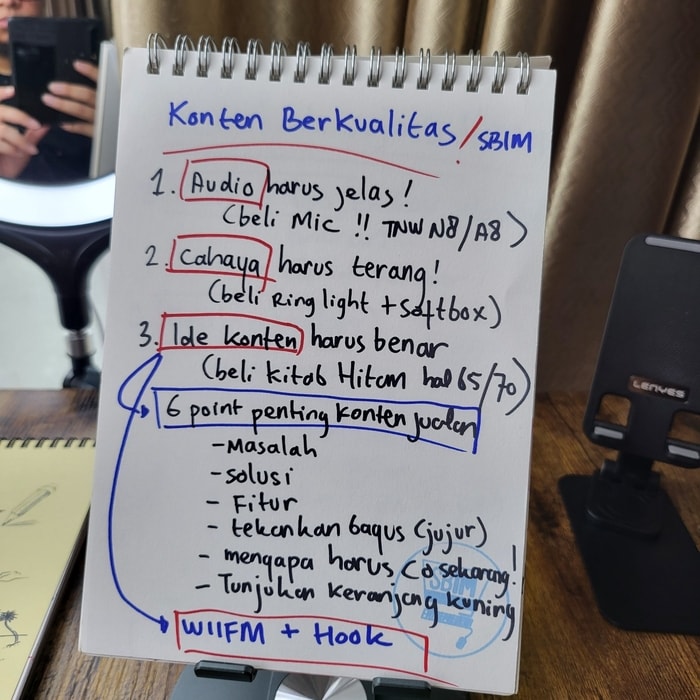 Konten Berkualitas / SBIM
1. Audio harus jelas !
(beli Mic !! TNW N8/A8)
2. Cahaya harus terang!
(beli Ring light + Softbox)
3. Ide konten harus benar
(beli Kitab Hitam hal 65/70)
6 point penting konten jualan
- Masalah
- solusi
- Fitur
- tekankan bagus (jujur)
- mengapa harus CO sekarang!
- Tunjukan keranjang kuning
WIIFM + Hook
SBIM
LENYES